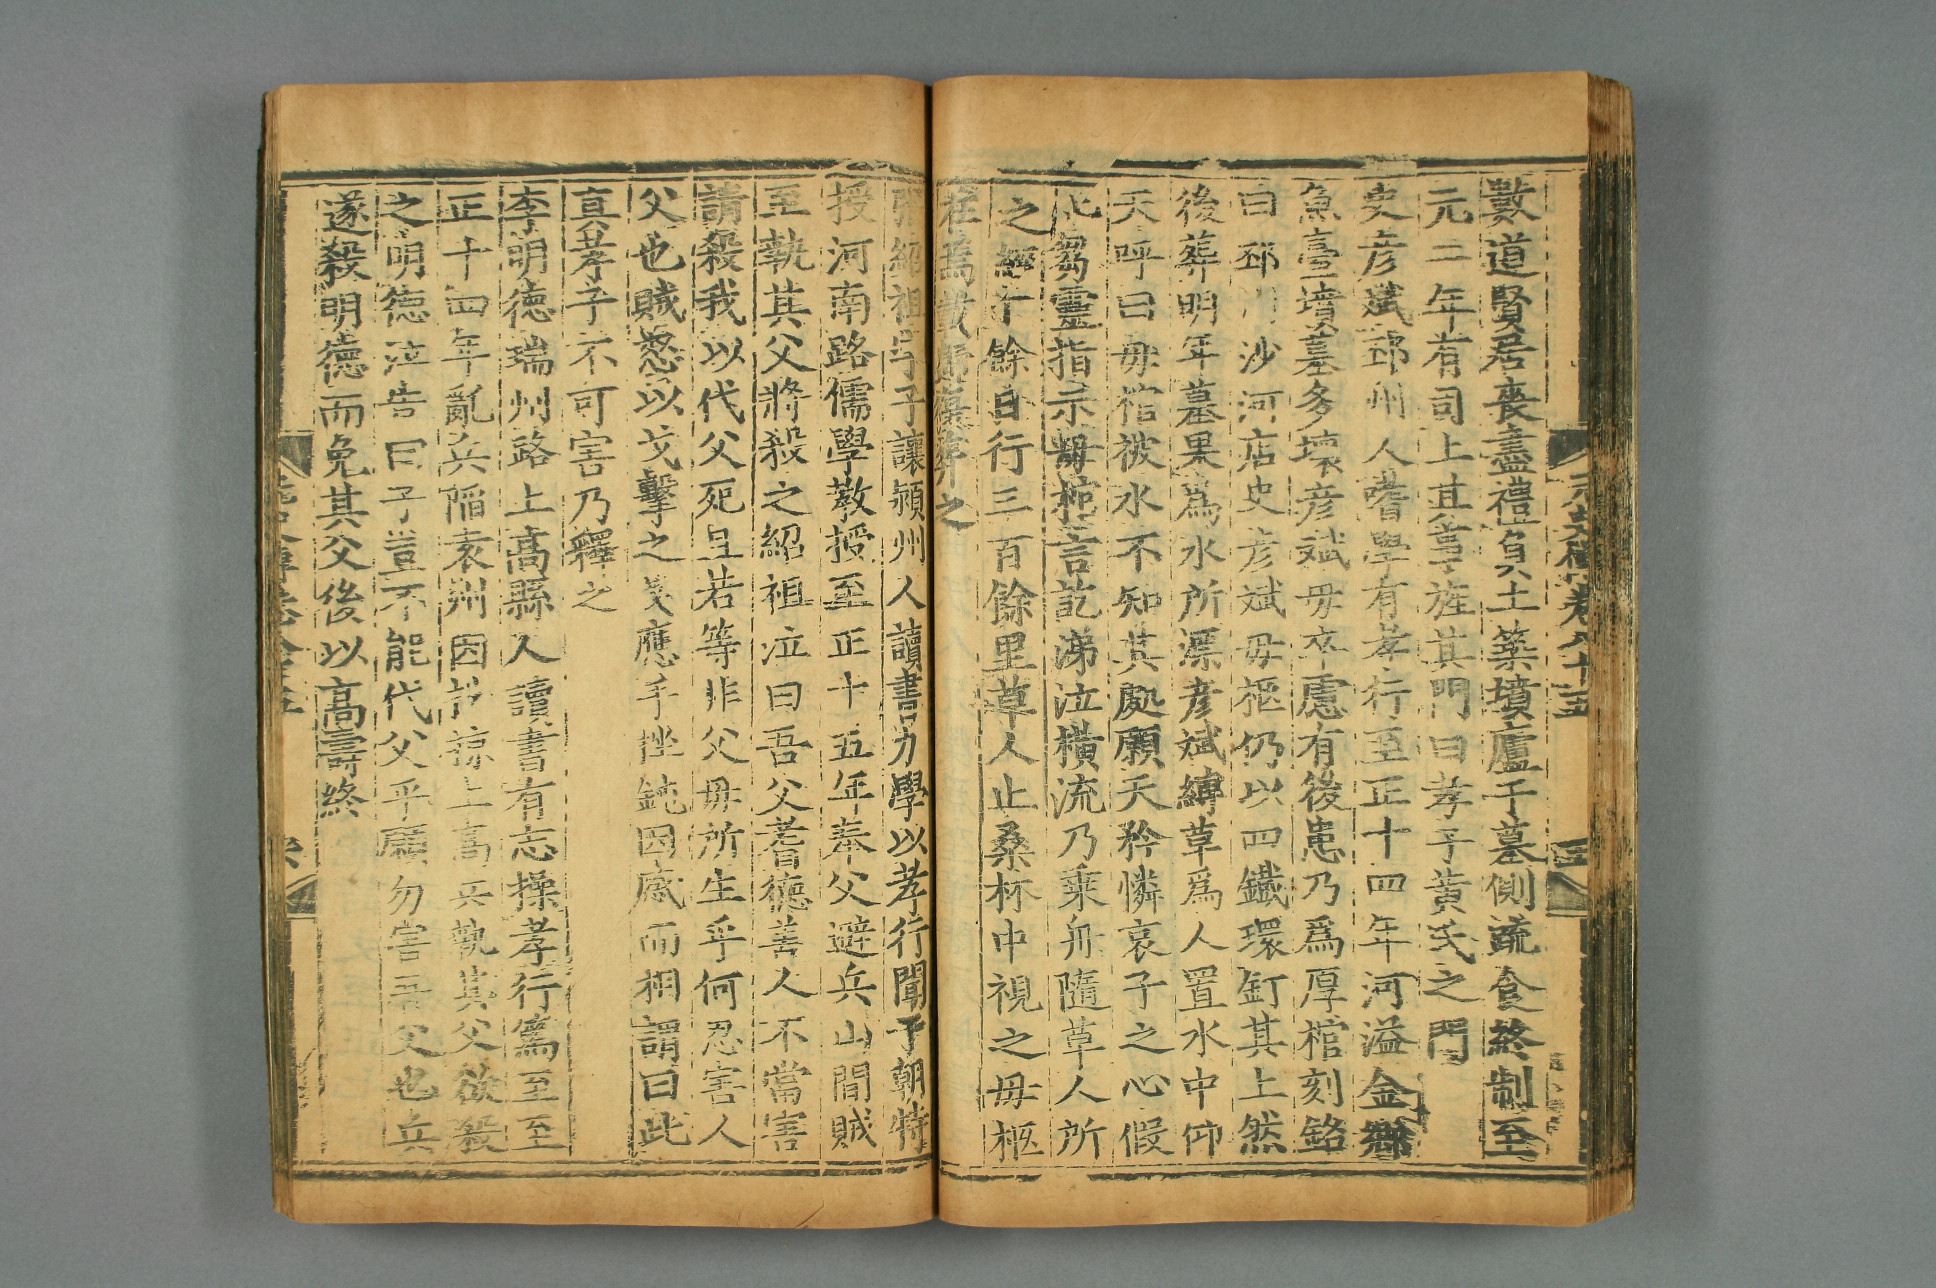 元史傳卷八十五
數道賢居喪盡禮負土築墳廬于墓側疏食終制至
元二年有司上其事旌其門曰孝子黃氏之門
史彦斌邳州人嗜學有孝行至正十四年河溢金鄉
魚臺墳墓多壞彦斌母卒慮有後患乃爲厚棺刻銘
曰邳州沙河店史彦斌母柩仍以四鐵環釘其上然
後葬明年墓果爲水所漂彦斌縛草爲人置水中仰
天呼曰母棺被水不知其處願天矜憐哀子之心假
此芻靈指示母棺言訖涕泣橫流乃乘舟隨草人所
之經十餘日行三百餘里草人止桑林中視之母柩
在焉載歸復葬之
張紹祖字子讓潁州人讀書力學以孝行聞于朝特
授河南路儒學教授至正十五年奉父避兵山間賊
至執其父將殺之紹祖泣曰吾父耆德善人不當害
請殺我以代父死且若等非父母所生乎何忍害人
父也賊怒以戈擊之戈應手挫鈍因感而相謂曰此
真孝子不可害乃釋之
李明德瑞州路上高縣人讀書有志操孝行篤至至
正十四年亂兵陷袁州因抄掠上高兵執其父欲殺
之明德泣告曰子豈不能代父乎願勿害吾父也兵
遂殺明德而免其父後以高壽終